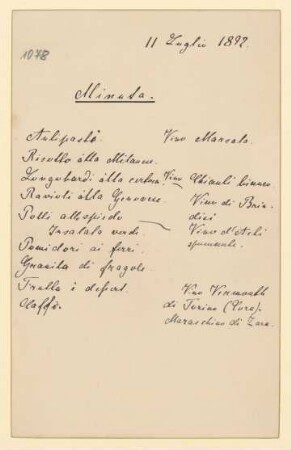 11 Luglio 1892.
1078
Minuta.
Antipasto. Vino Marsala.
Risotto alla Milanese.
Longobardi alla Vino Chianti bianco
Ravioli alla Genovese Vino di Brin-
disi
Polli allo spiedo
Insalata verde. Vino d'Asti
spumante.
Pomidori ai ferri.
Granita di fragole
Frutta e desert. Vino Vermouth
di Torino (Cora).
Caffè. Maraschino di Zara.